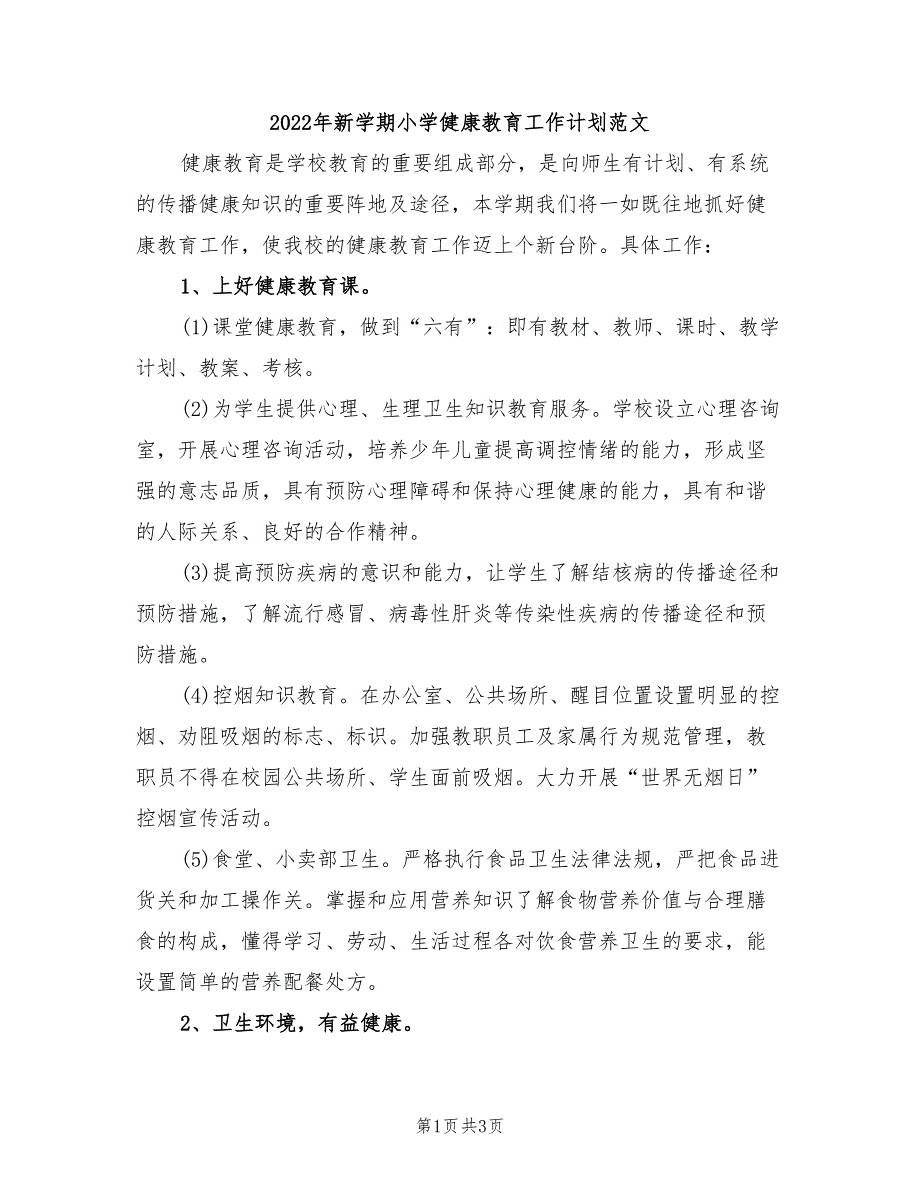 2022年新学期小学健康教育工作计划范文
健康教育是学校教育的重要组成部分，是向师生有计划、有系统
的传播健康知识的重要阵地及途径，本学期我们将一如既往地抓好健
康教育工作，使我校的健康教育工作迈上个新台阶。具体工作：
1、上好健康教育课。
(1)课堂健康教育，做到“六有”：即有教材、教师、课时、教学
计划、教案、考核。
(2)为学生提供心理、生理卫生知识教育服务。学校设立心理咨询
室，开展心理咨询活动，培养少年儿童提高调控情绪的能力，形成坚
强的意志品质，具有预防心理障碍和保持心理健康的能力，具有和谐
的人际关系、良好的合作精神。
(3)提高预防疾病的意识和能力，让学生了解结核病的传播途径和
预防措施，了解流行感冒、病毒性肝炎等传染性疾病的传播途径和预
防措施。
(4)控烟知识教育。在办公室、公共场所、醒目位置设置明显的控
烟、劝阻吸烟的标志、标识。加强教职员工及家属行为规范管理，教
职员不得在校园公共场所、学生面前吸烟。大力开展“世界无烟日”
控烟宣传活动。
(5)食堂、小卖部卫生。严格执行食品卫生法律法规，严把食品进
货关和加工操作关。掌握和应用营养知识了解食物营养价值与合理膳
食的构成，懂得学习、劳动、生活过程各对饮食营养卫生的要求，能
设置简单的营养配餐处方。
2、卫生环境，有益健康。
第1页共3页